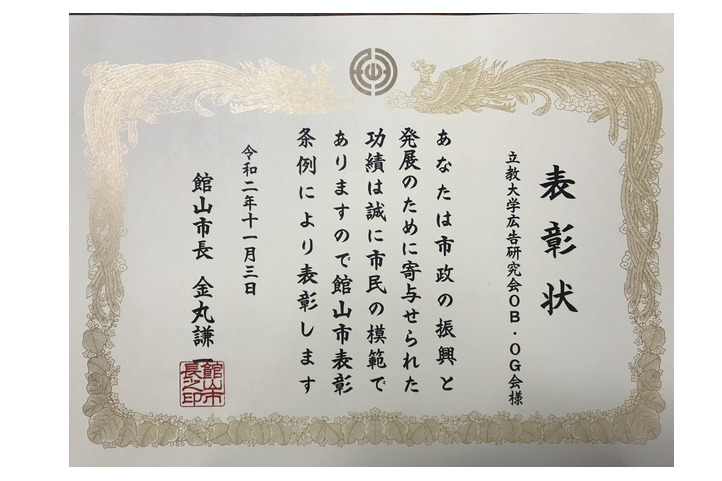 表彰状
立教大学広告研究会OB・OG会様
あなたは市政の振興と
発展のために寄与せられた
功績は誠に市民の模範で
ありますので館山市表彰
条例により表彰します
令和二年十一月三日
館山市長 金丸謙一
館山市
長之印